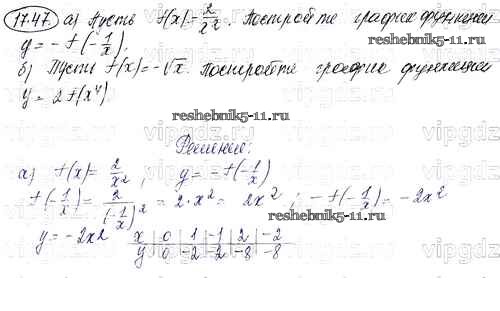 17.47. а) Пусть f(x) - 2/x². Постройте график функции
y = -f(-1/x);
б) Пусть f(x) = -√x. Постройте график функции
y = 2f(x⁴).
reshebnik5-11.ru
reshebnik5-11.ru
Решение:
а) f(x) = 2/x² ; y = -f(-1/x)
f(-1/x) = 2/(-1/x)² = 2·x² = 2x² ; -f(-1/x) = -2x²
reshebnik5-11.ru
y = -2x2 x | 0 | 1 | -1 | 2 | -2
y | 0 | -2 | -2 | -8 | -8